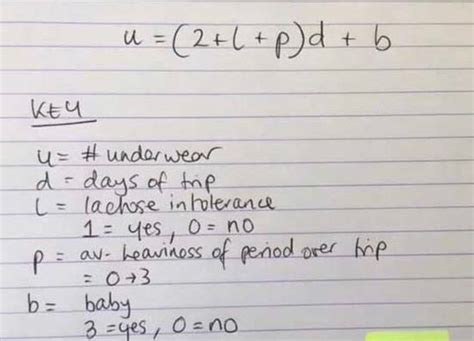 u = (2+l+p)d + b
KEY
u = # underwear
d = days of trip
l = lachose intolerance
1 = yes, 0 = no
p = av. heaviness of period over trip
= 0→3
b = baby
3 = yes, 0 = no